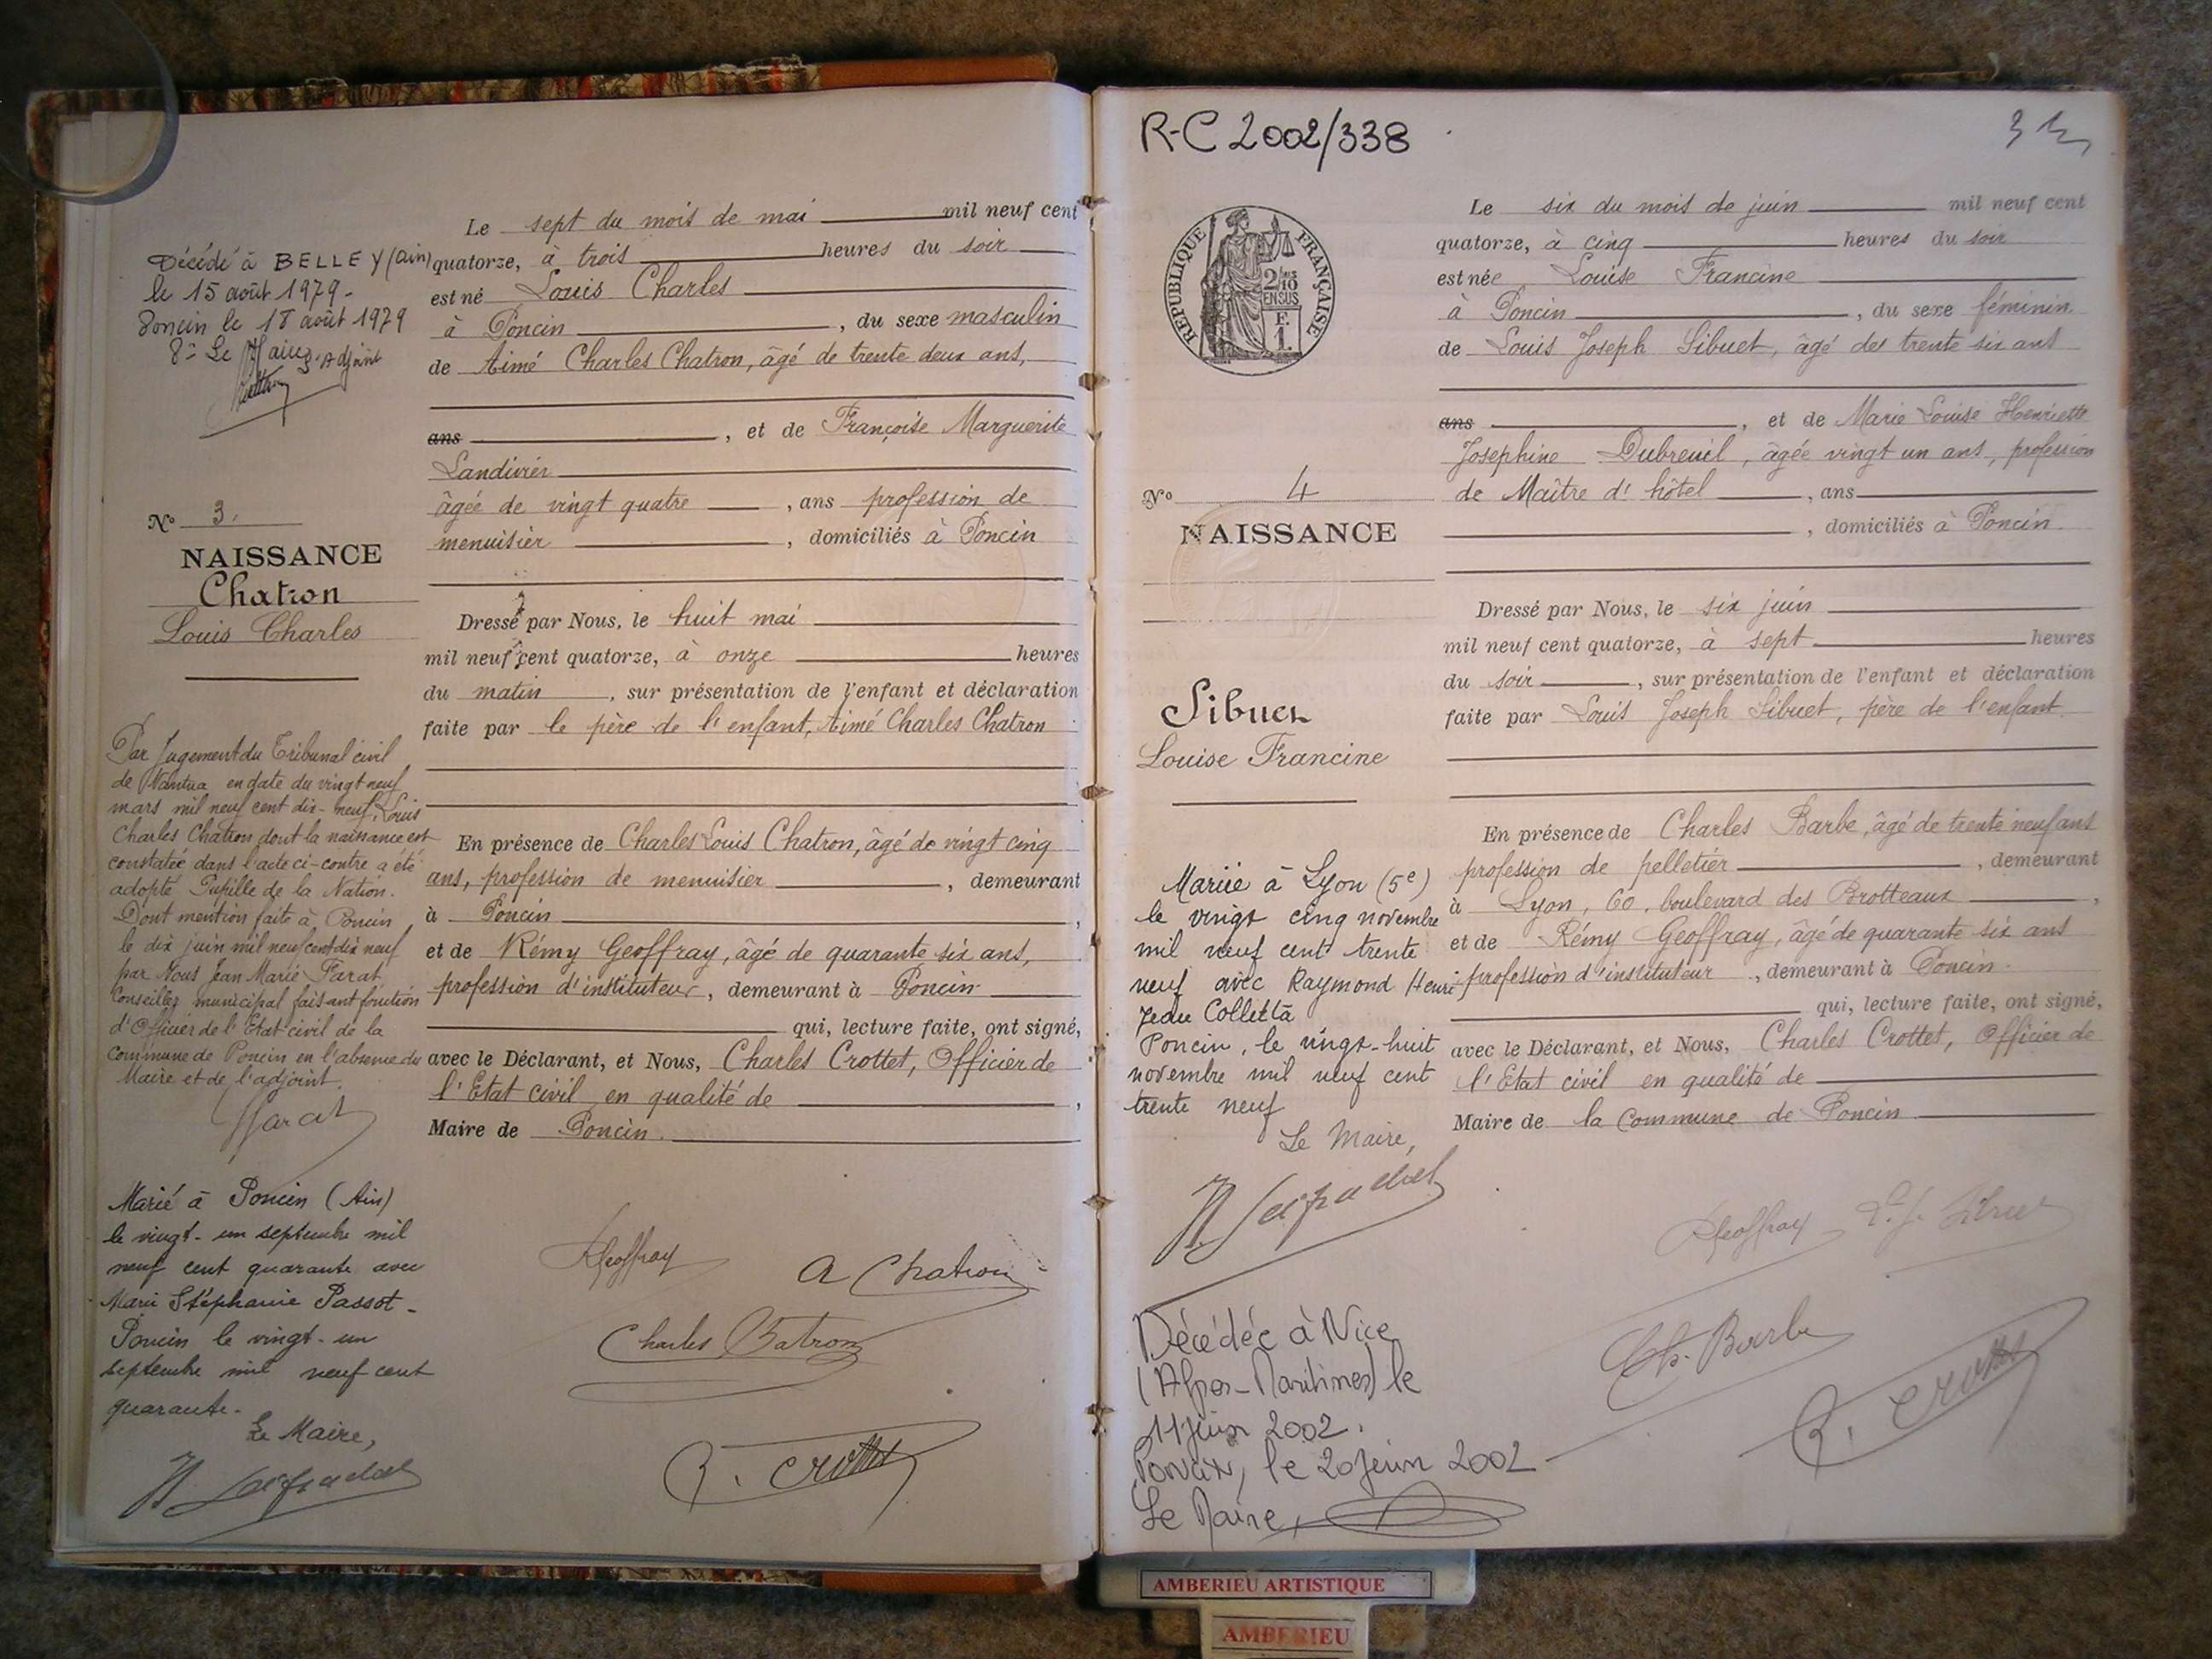 Décédé à BELLEY (Ain)
le 15 août 1979-
Poncin le 18 août 1979
Le Maire, Adjoint
N° 3.
NAISSANCE
Chatron
Louis Charles
Par Jugement du Tribunal civil
de Nantua en date du vingt neuf
mars mil neuf cent dix-neuf, Louis
Charles Chatron dont la naissance est
constatée dans l'acte ci-contre a été
adopté Pupille de la Nation.
Dont mention faite à Poncin
le dix juin mil neuf cent dix neuf
par Nous Jean Marie Farat,
Conseiller municipal faisant fonction
d'Officier de l'Etat civil de la
Commune de Poncin en l'absence du
Maire et de l'adjoint.
Farat
Marié à Poncin (Ain)
le vingt-un septembre mil
neuf cent quarante avec
Marie Stéphanie Passot-
Poncin le vingt-un
septembre mil neuf cent
quarante-
Le Maire,
Le sept du mois de mai mil neuf cent
quatorze, à trois heures du soir
est né Louis Charles
à Poncin, du sexe masculin
de Aimé Charles Chatron, âgé de trente deux ans,
ans, et de Françoise Marguerite
Landivier
âgée de vingt quatre, ans profession de
menuisier, domiciliés à Poncin
Dressé par Nous, le huit mai
mil neuf cent quatorze, à onze heures
du matin, sur présentation de l'enfant et déclaration
faite par le père de l'enfant, Aimé Charles Chatron
En présence de Charles Louis Chatron, âgé de vingt cinq
ans, profession de menuisier, demeurant
à Poncin,
et de Rémy Geoffray, âgé de quarante six ans,
profession d'instituteur, demeurant à Poncin
qui, lecture faite, ont signé,
avec le Déclarant, et Nous, Charles Crottet, Officier de
l'Etat civil en qualité de,
Maire de Poncin.
RGeoffray
A Chatron
Charles Chatron
C. Crottet
R-C 2002/338
REPUBLIQUE FRANÇAISE
2/10
EN SUS
F.
1.
N° 4
NAISSANCE
Sibuet
Louise Francine
Mariée à Lyon (5e)
le vingt cinq novembre
mil neuf cent trente
neuf avec Raymond Henri
Jean Colletta
Poncin, le vingt-huit
novembre mil neuf cent
trente neuf
Le Maire,
Décédée à Nice
(Alpes-Maritimes) le
11 juin 2002.
Poncin, le 20 juin 2002
Le Maire,
Le six du mois de juin mil neuf cent
quatorze, à cinq heures du soir
est née Louise Francine
à Poncin, du sexe féminin
de Louis Joseph Sibuet, âgé des trente six ans
ans, et de Marie Louise Henriette
Josephine Dubreuil, âgée vingt un ans, profession
de Maître d'hôtel, ans
, domiciliés à Poncin.
Dressé par Nous, le six juin
mil neuf cent quatorze, à sept heures
du soir, sur présentation de l'enfant et déclaration
faite par Louis Joseph Sibuet, père de l'enfant
En présence de Charles Barbe, âgé de trente neuf ans
profession de pelletier, demeurant
à Lyon, 60, boulevard des Brotteaux,
et de Rémy Geoffray, âgé de quarante six ans
profession d'instituteur, demeurant à Poncin.
qui, lecture faite, ont signé,
avec le Déclarant, et Nous, Charles Crottet, Officier de
l'Etat civil en qualité de
Maire de la Commune de Poncin
RGeoffray
L. J. Sibuet
Ch. Barbe
C. Crottet
AMBERIEU ARTISTIQUE
AMBERIEU